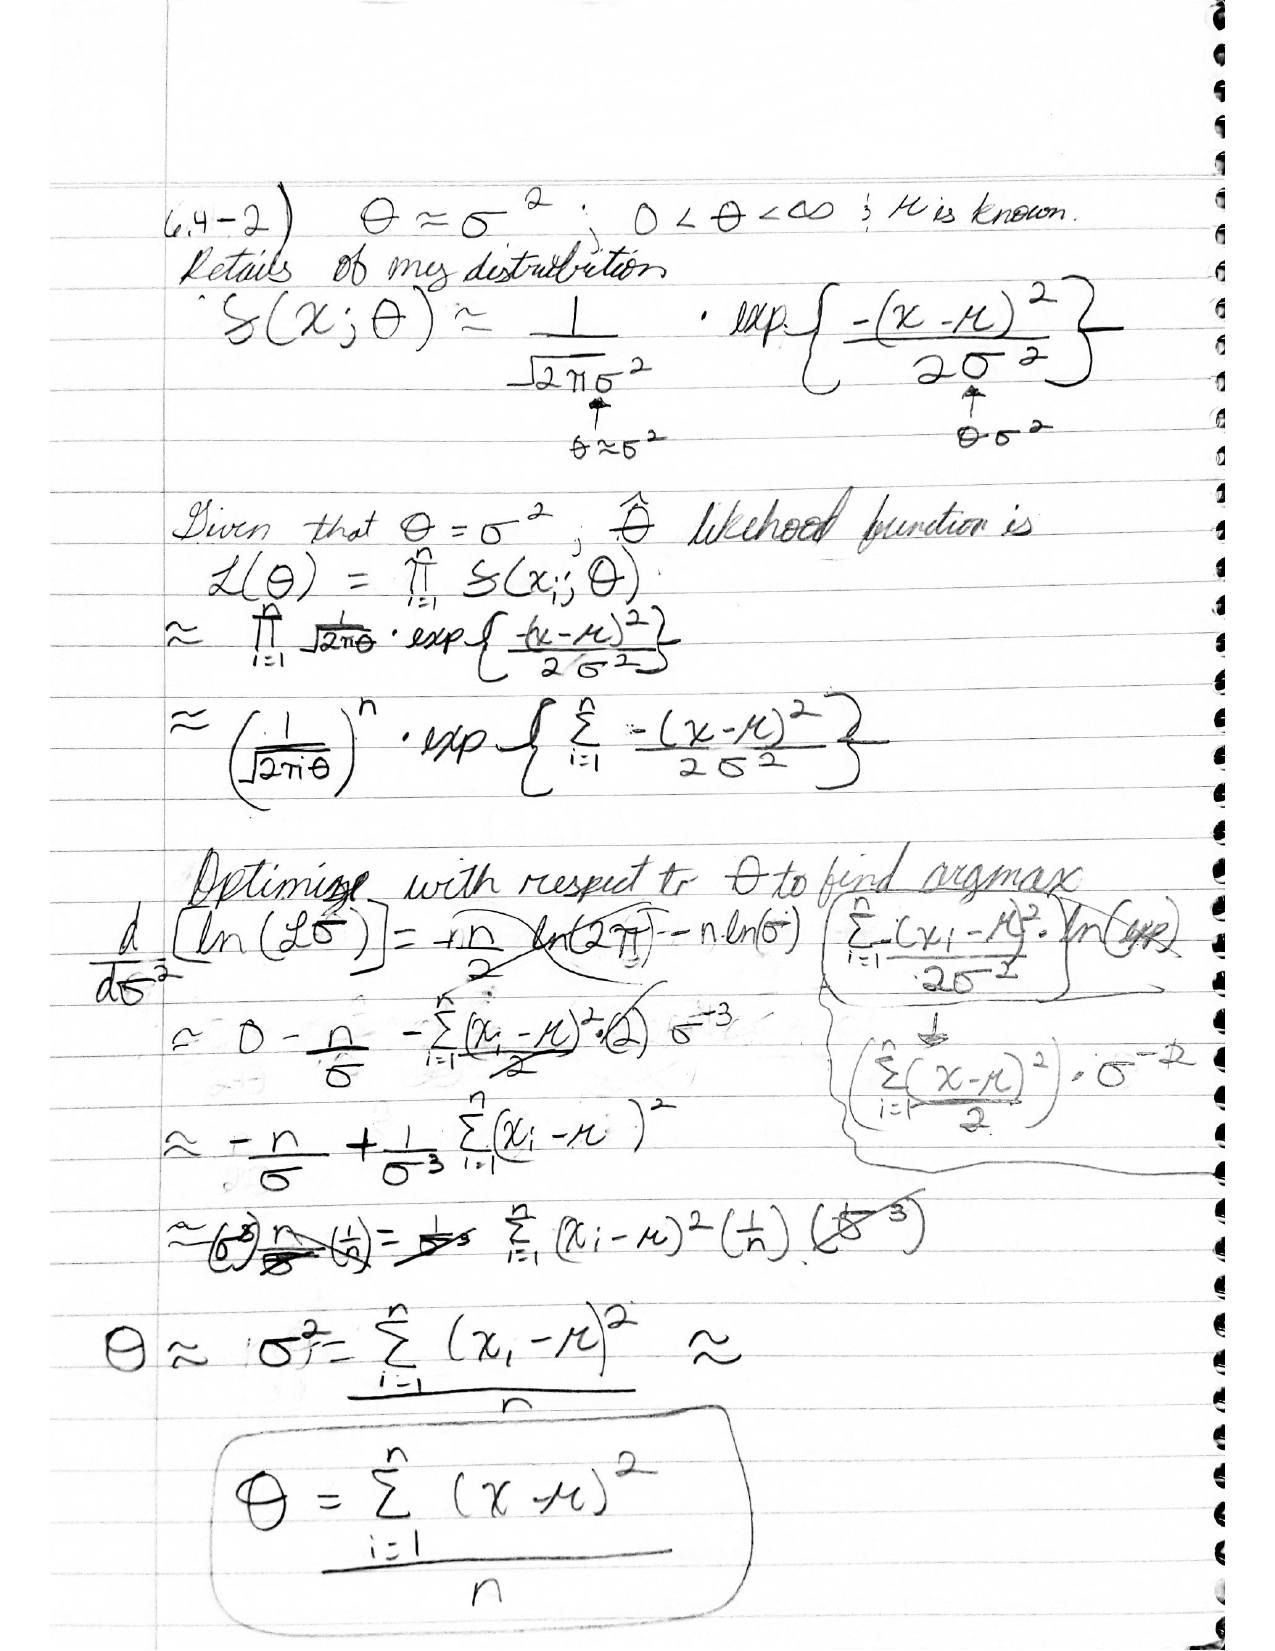 6.4-2) θ ≈ σ²; 0 < θ < ∞ ; μ is known.
Details of my distribution
f(x; θ) ≈ 1/√2πσ² · exp{-(x-μ)²/2σ²}
θ≈σ² θ σ²
Given that θ = σ²; θ̂ likehood function is
L(θ) = ∏ᵢ₌₁ⁿ f(xᵢ; θ)
≈ ∏ᵢ₌₁ⁿ 1/√2πθ · exp{-(x-μ)²/2σ²}
≈ (1/√2πθ)ⁿ · exp{∑ᵢ₌₁ⁿ -(x-μ)²/2σ²}
Optimize with respect to θ to find argmax
d/dσ² [ln(Lσ)] = -n/2 ln(2π) - n·ln(σ) (∑ᵢ₌₁ⁿ -(xᵢ-μ)²/2σ²) · ln(exp)
≈ 0 - n/σ - ∑ᵢ₌₁ⁿ (xᵢ-μ)²/2 · (2) σ⁻³
(∑ᵢ₌₁ⁿ (x-μ)²/2) · σ⁻²
≈ -n/σ + 1/σ³ ∑ᵢ₌₁ⁿ (xᵢ-μ)²
≈ (σ³) n/σ (1/n) = 1/σ³ ∑ᵢ₌₁ⁿ (xᵢ-μ)² (1/n) (σ³)
θ ≈ σ² = ∑ᵢ₌₁ⁿ (xᵢ-μ)²/n ≈
θ = ∑ᵢ₌₁ⁿ (x-μ)²/n